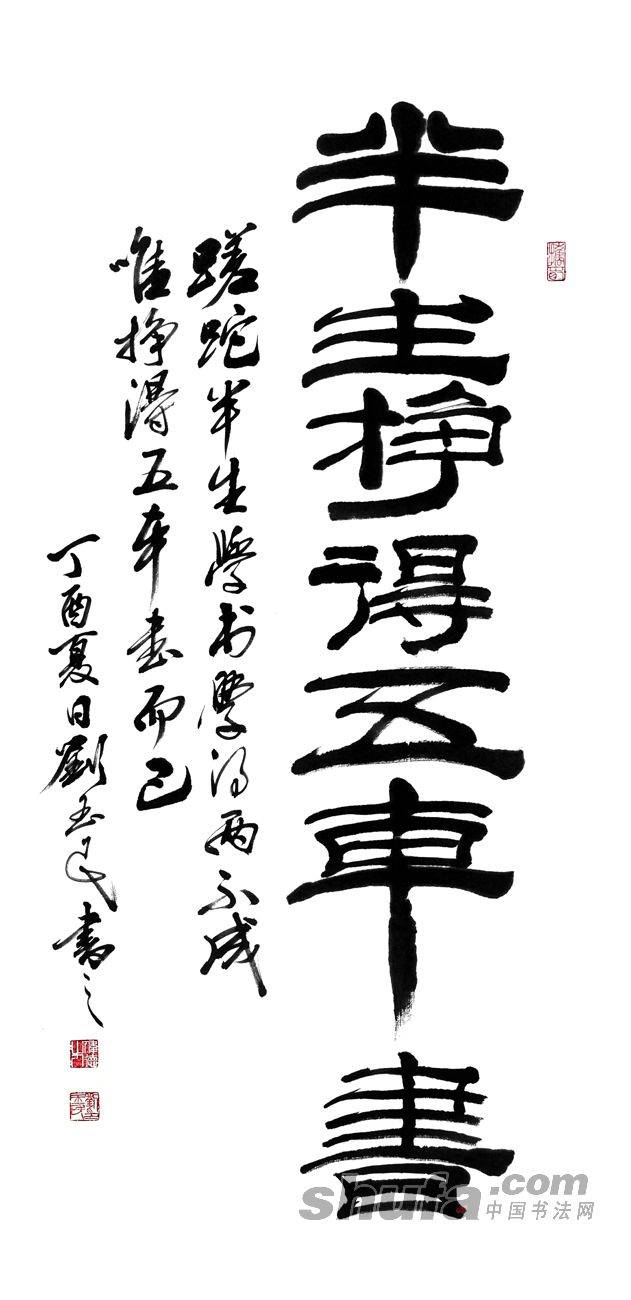 半生掙得五車書
蹉跎半生學書學兩不成
唯掙得五車書而已
丁酉夏日劉玉民書之
shufa.com
中国书法网